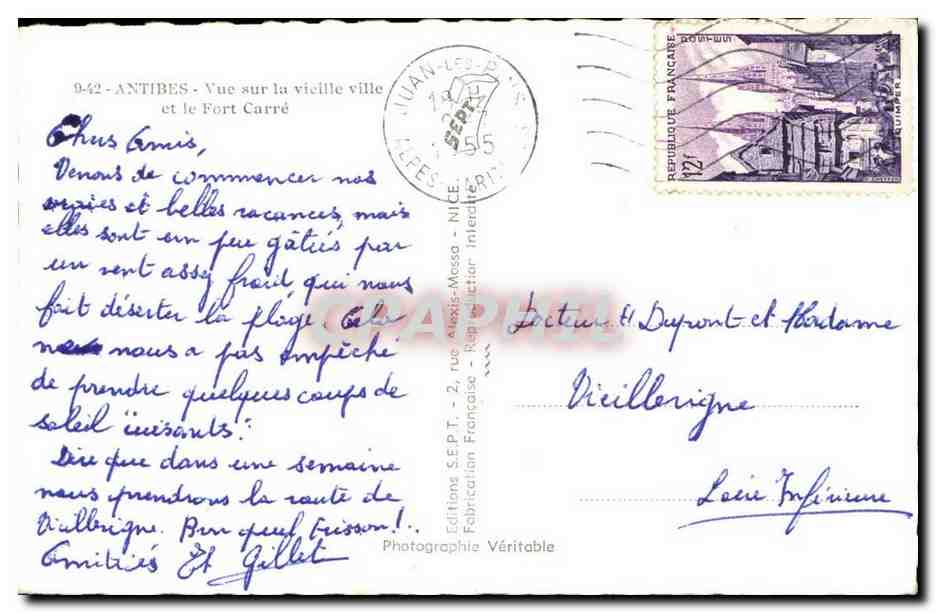 9-42 - ANTIBES - Vue sur la vieille ville
et le Fort Carré
Chers Amis,
Venons de commencer nos
vraies et belles vacances, mais
elles sont un peu gâtées par
un vent assez froid qui nous
fait déserter la plage. Cela
nous a pas empêché
de prendre quelques coups de
soleil "cuisants".
Dire que dans une semaine
nous prendrons la route de
Vieillevigne. Brr quel frisson!..
Amitiés Et Gillet
JUAN-LES-PINS
SEPT.
1955
ALPES MARIT
Editions S.E.P.T. - 2, rue Alexis-Mossa - NICE
Fabrication Française - Reproduction Interdite
Photographie Véritable
REPUBLIQUE FRANÇAISE
POSTES
12F
QUIMPER
Docteur H Dupont et Madame
Vieillevigne
Loire Inférieure
CPAPHIL